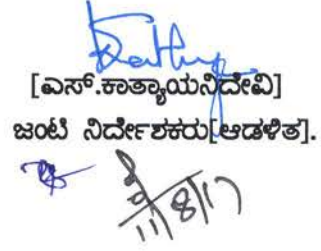 [ಎಸ್.ಕಾತ್ಯಾಯನಿದೇವಿ]
ಜಂಟಿ ನಿರ್ದೇಶಕರು[ಆಡಳಿತ].
11/8/17